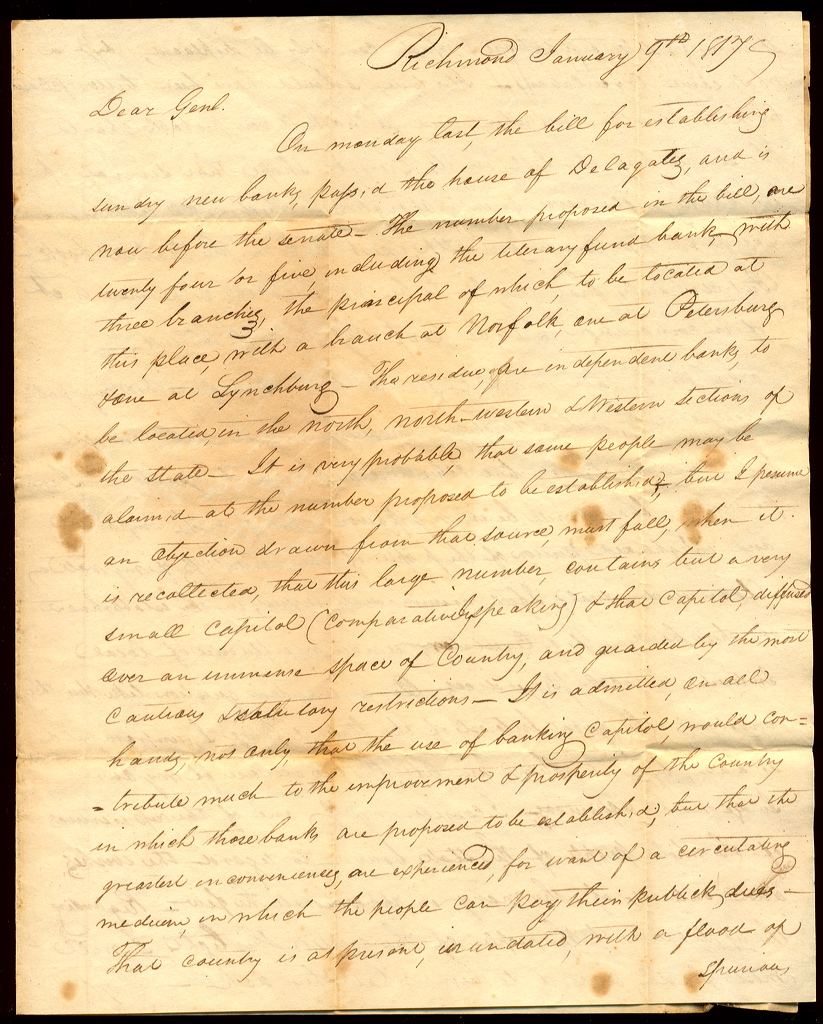 Richmond January 9th 1817
Dear Genl.
On monday last, the bill for establishing
sundry new banks, pass,d the house of Delagates, and is
now before the senate — The number proposed in the bill, are
twenty four or five, including the literary fund bank, with
three branches, the principal of which, to be located at
this place, with a branch at Norfolk, one at Petersburg
& one at Lynchburg — The residue, are independent banks, to
be located, in the north, north-western & Western sections of
the state — It is very probable, that some people may be
alarm,d at the number proposed to be establish,d, but I presume
an objection drawn from that source, must fall, when it
is recollected, that this large number, contains but a very
small capitol (comparatively speaking) & that capitol, diffused
over an immense space of Country, and guarded by the most
cautious & salutary restrictions — It is admitted, on all
hands, not only, that the use of banking Capitol, would con=
=tribute much to the improvement & prosperity of the Country
in which those banks are proposed to be establish,d, but that the
greatest inconveniences, are experienced, for want of a circulating
medium, in which the people can pay their publick dues —
That country is at present, inundated, with a flood of
spurious